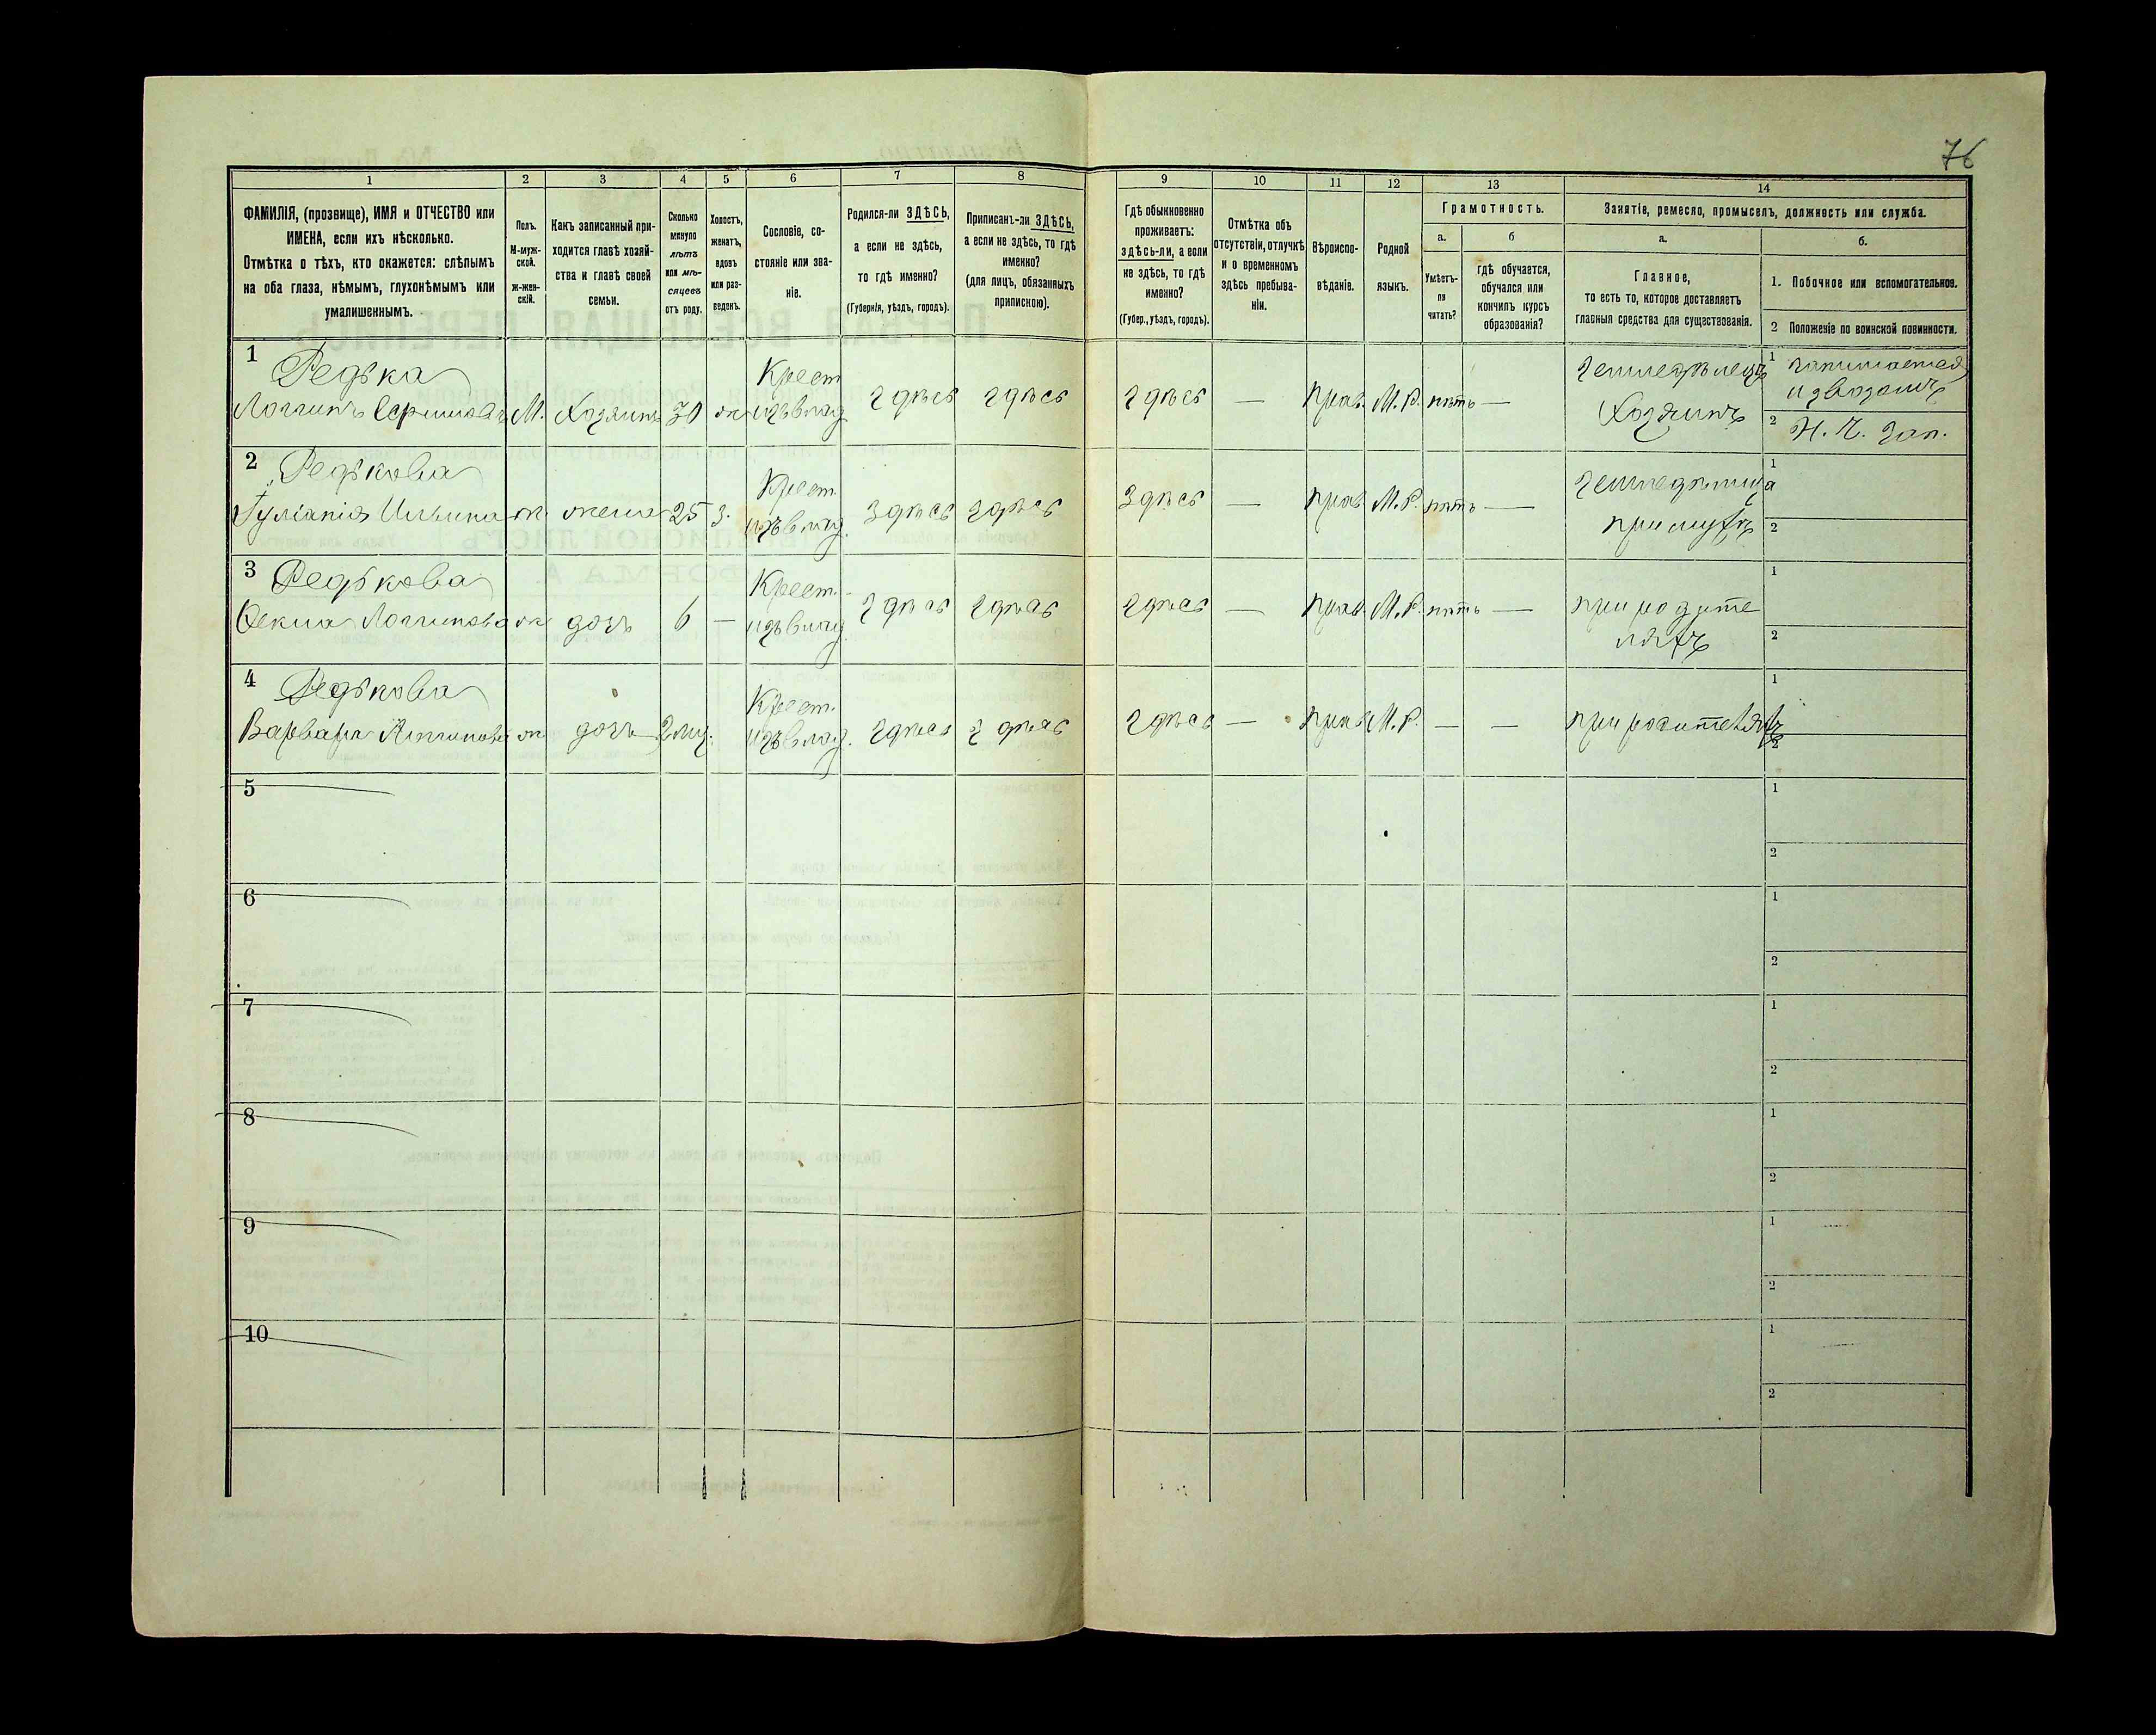 76
1 2 3 4 5 6 7 8 9 10 11 12 13 14
ФАМИЛІЯ, (прозвище), ИМЯ и ОТЧЕСТВО или
ИМЕНА, если ихъ нѣсколько.
Отмѣтка о тѣхъ, кто окажется: слѣпымъ
на оба глаза, нѣмымъ, глухонѣмымъ или
умалишеннымъ.
Полъ.
М-муж-
ской.
ж-жен-
скій.
Какъ записанный при-
ходится главѣ хозяй-
ства и главѣ своей
семьи.
Сколько
минуло
лѣтъ
или мѣ-
сяцевъ
отъ роду.
Холостъ,
женатъ,
вдовъ
или раз-
веденъ.
Сословіе, со-
стояніе или зва-
ніе.
Родился-ли ЗДѢСЬ,
а если не здѣсь,
то гдѣ именно?
(Губернія, уѣздъ, городъ).
Приписанъ-ли ЗДѢСЬ,
а если не здѣсь, то гдѣ
именно?
(для лицъ, обязанныхъ
припискою).
Гдѣ обыкновенно
проживаетъ:
здѣсь-ли, а если
не здѣсь, то гдѣ
именно?
(Губер., уѣздъ, городъ).
Отмѣтка объ
отсутствіи, отлучкѣ
и о временномъ
здѣсь пребыва-
ніи.
Вѣроиспо-
вѣданіе.
Родной
языкъ.
Грамотность.
а.
Умѣетъ-
ли
читать?
б
гдѣ обучается,
обучался или
кончилъ курсъ
образованія?
Занятіе, ремесло, промыселъ, должность или служба.
а.
Главное,
то есть то, которое доставляетъ
главныя средства для существованія.
б.
1. Побочное или вспомогательное.
2 Положеніе по воинской повинности.
1 Редька Крест. Земледѣлецъ 1 занимается
извозомъ
Логгинъ М. Хозяинъ 30 ж изъ влад. здѣсь здѣсь здѣсь — прав. М.Р. нѣтъ — Хозяинъ
2 Н. Ч. зап.
2 Редькова Крест. 1
Гуліанія Ильина ж. жена 25 з. изъ влад. Здѣсь здѣсь Здѣсь — прав. М.Р. нѣтъ — при мужѣ 2
3 Редькова Крест. 1
Фекла Логгинова ж дочь 6 — изъ влад. здѣсь здѣсь здѣсь — прав. М.Р. нѣтъ — при родите
ляхъ 2
4 Редькова Крест. 1
Варвара Логгинова ж дочь 2 мц. изъ влад. здѣсь здѣсь здѣсь — прав М.Р. — — при родителяхъ
2
5 1
2
6 1
2
7 1
2
8 1
2
9 1
2
10 1
2